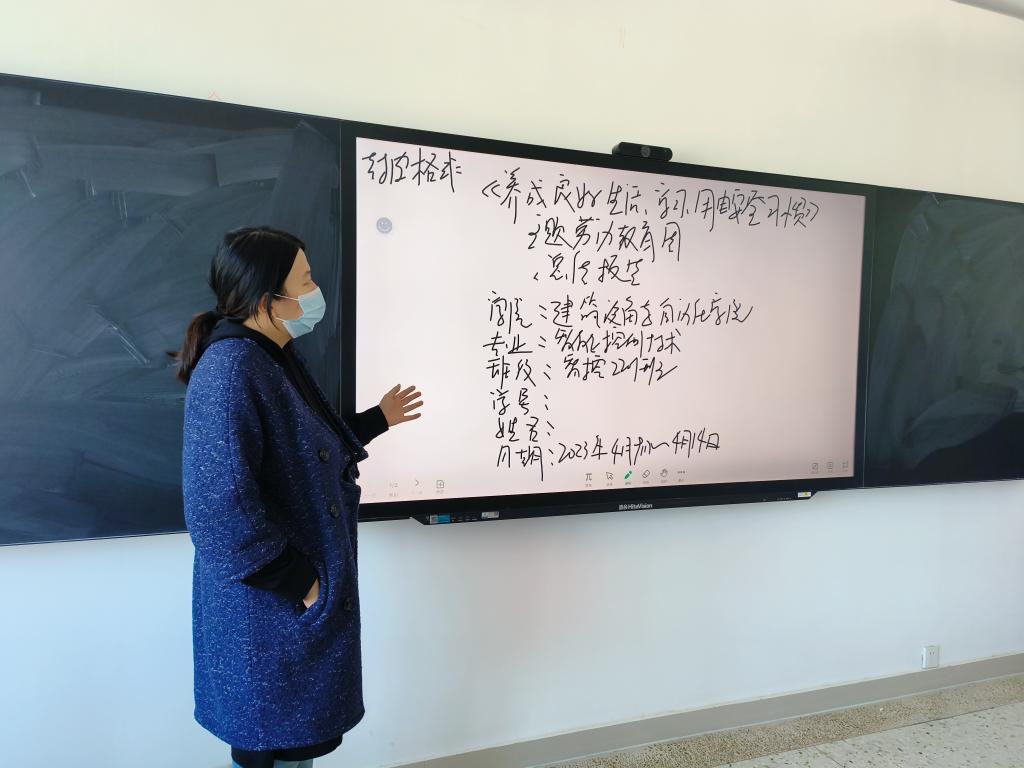 封面格式:
《养成良好生活、学习、用电安全习惯》
主题劳动教育周
总结报告
学院:建筑设备与自动化学院
专业:智能控制技术
班级:智控221班
学号:
姓名:
日期:2023年4月10~4月14日
HiteVision